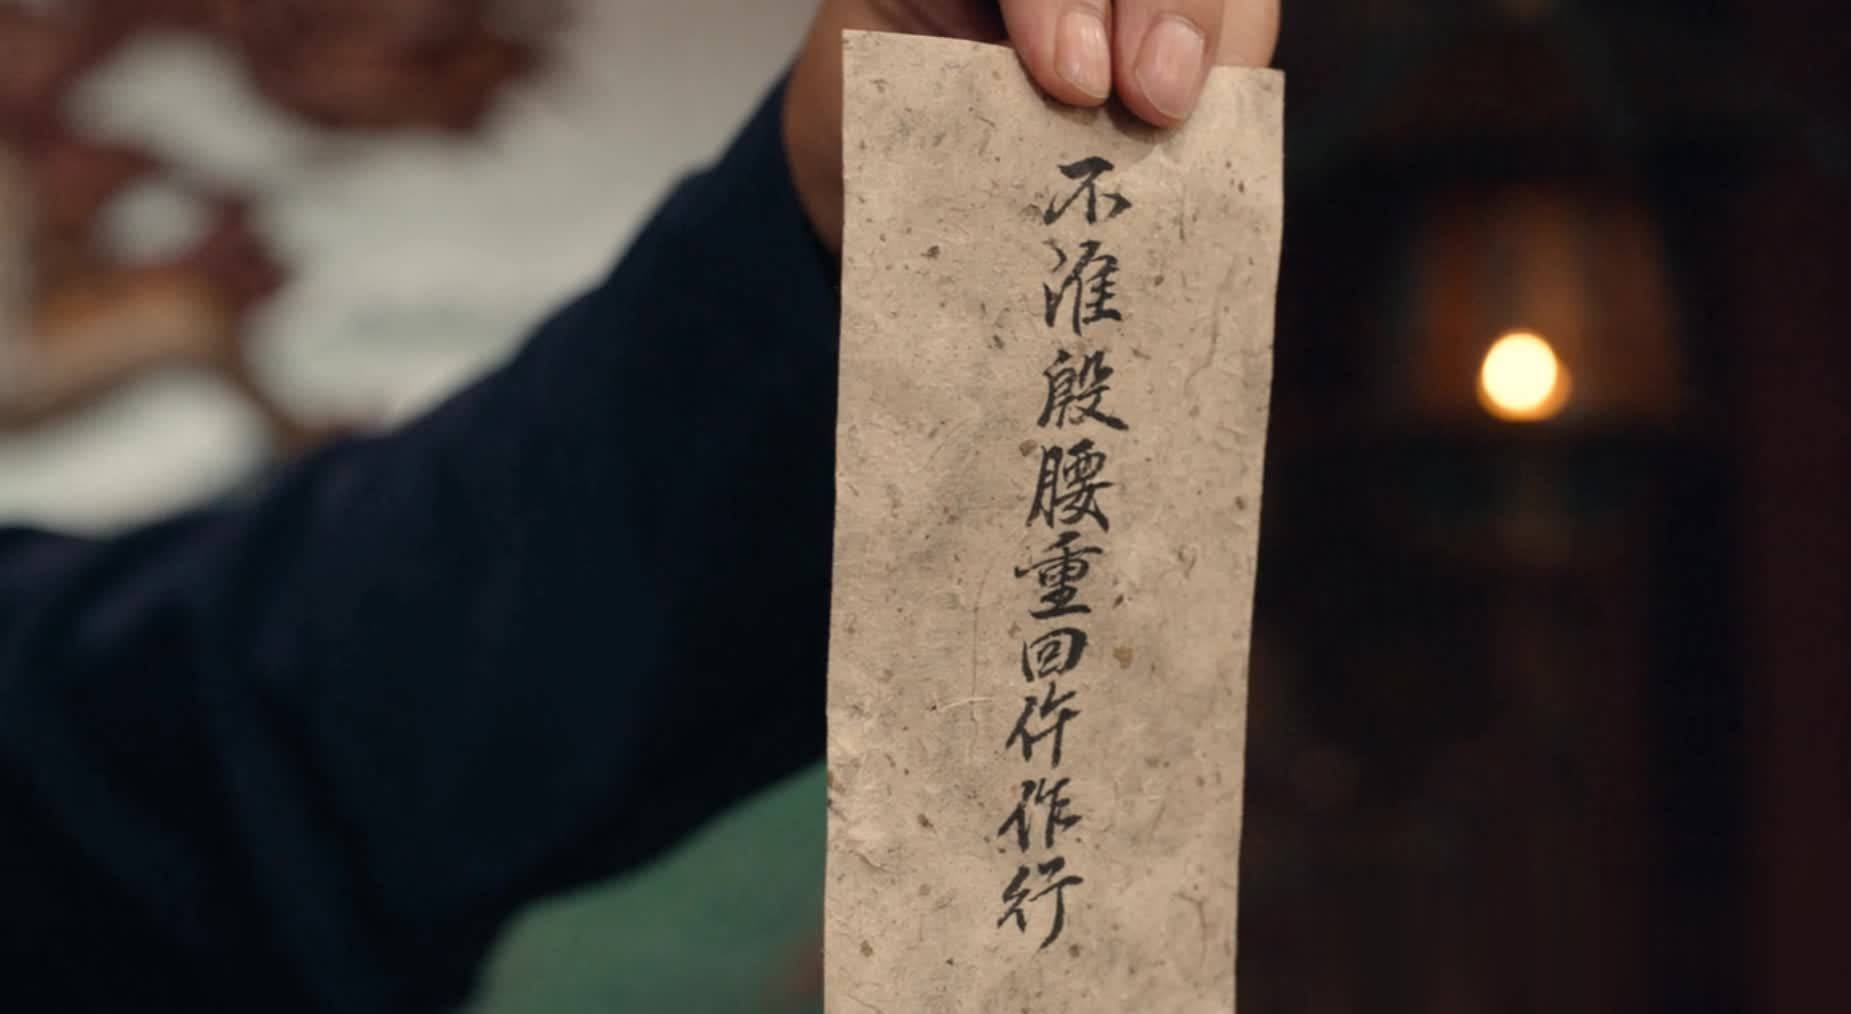 不淮殷腰重回仵作行